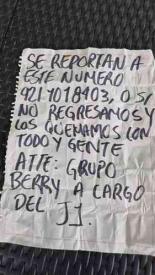 SE REPORTAN A
ESTE NUMERO
9211018403, O SI
NO REGRESAMOS Y
LOS QUEMAMOS CON
TODO Y GENTE
ATTE: GRUPO
BERRY A CARGO
DEL J1.